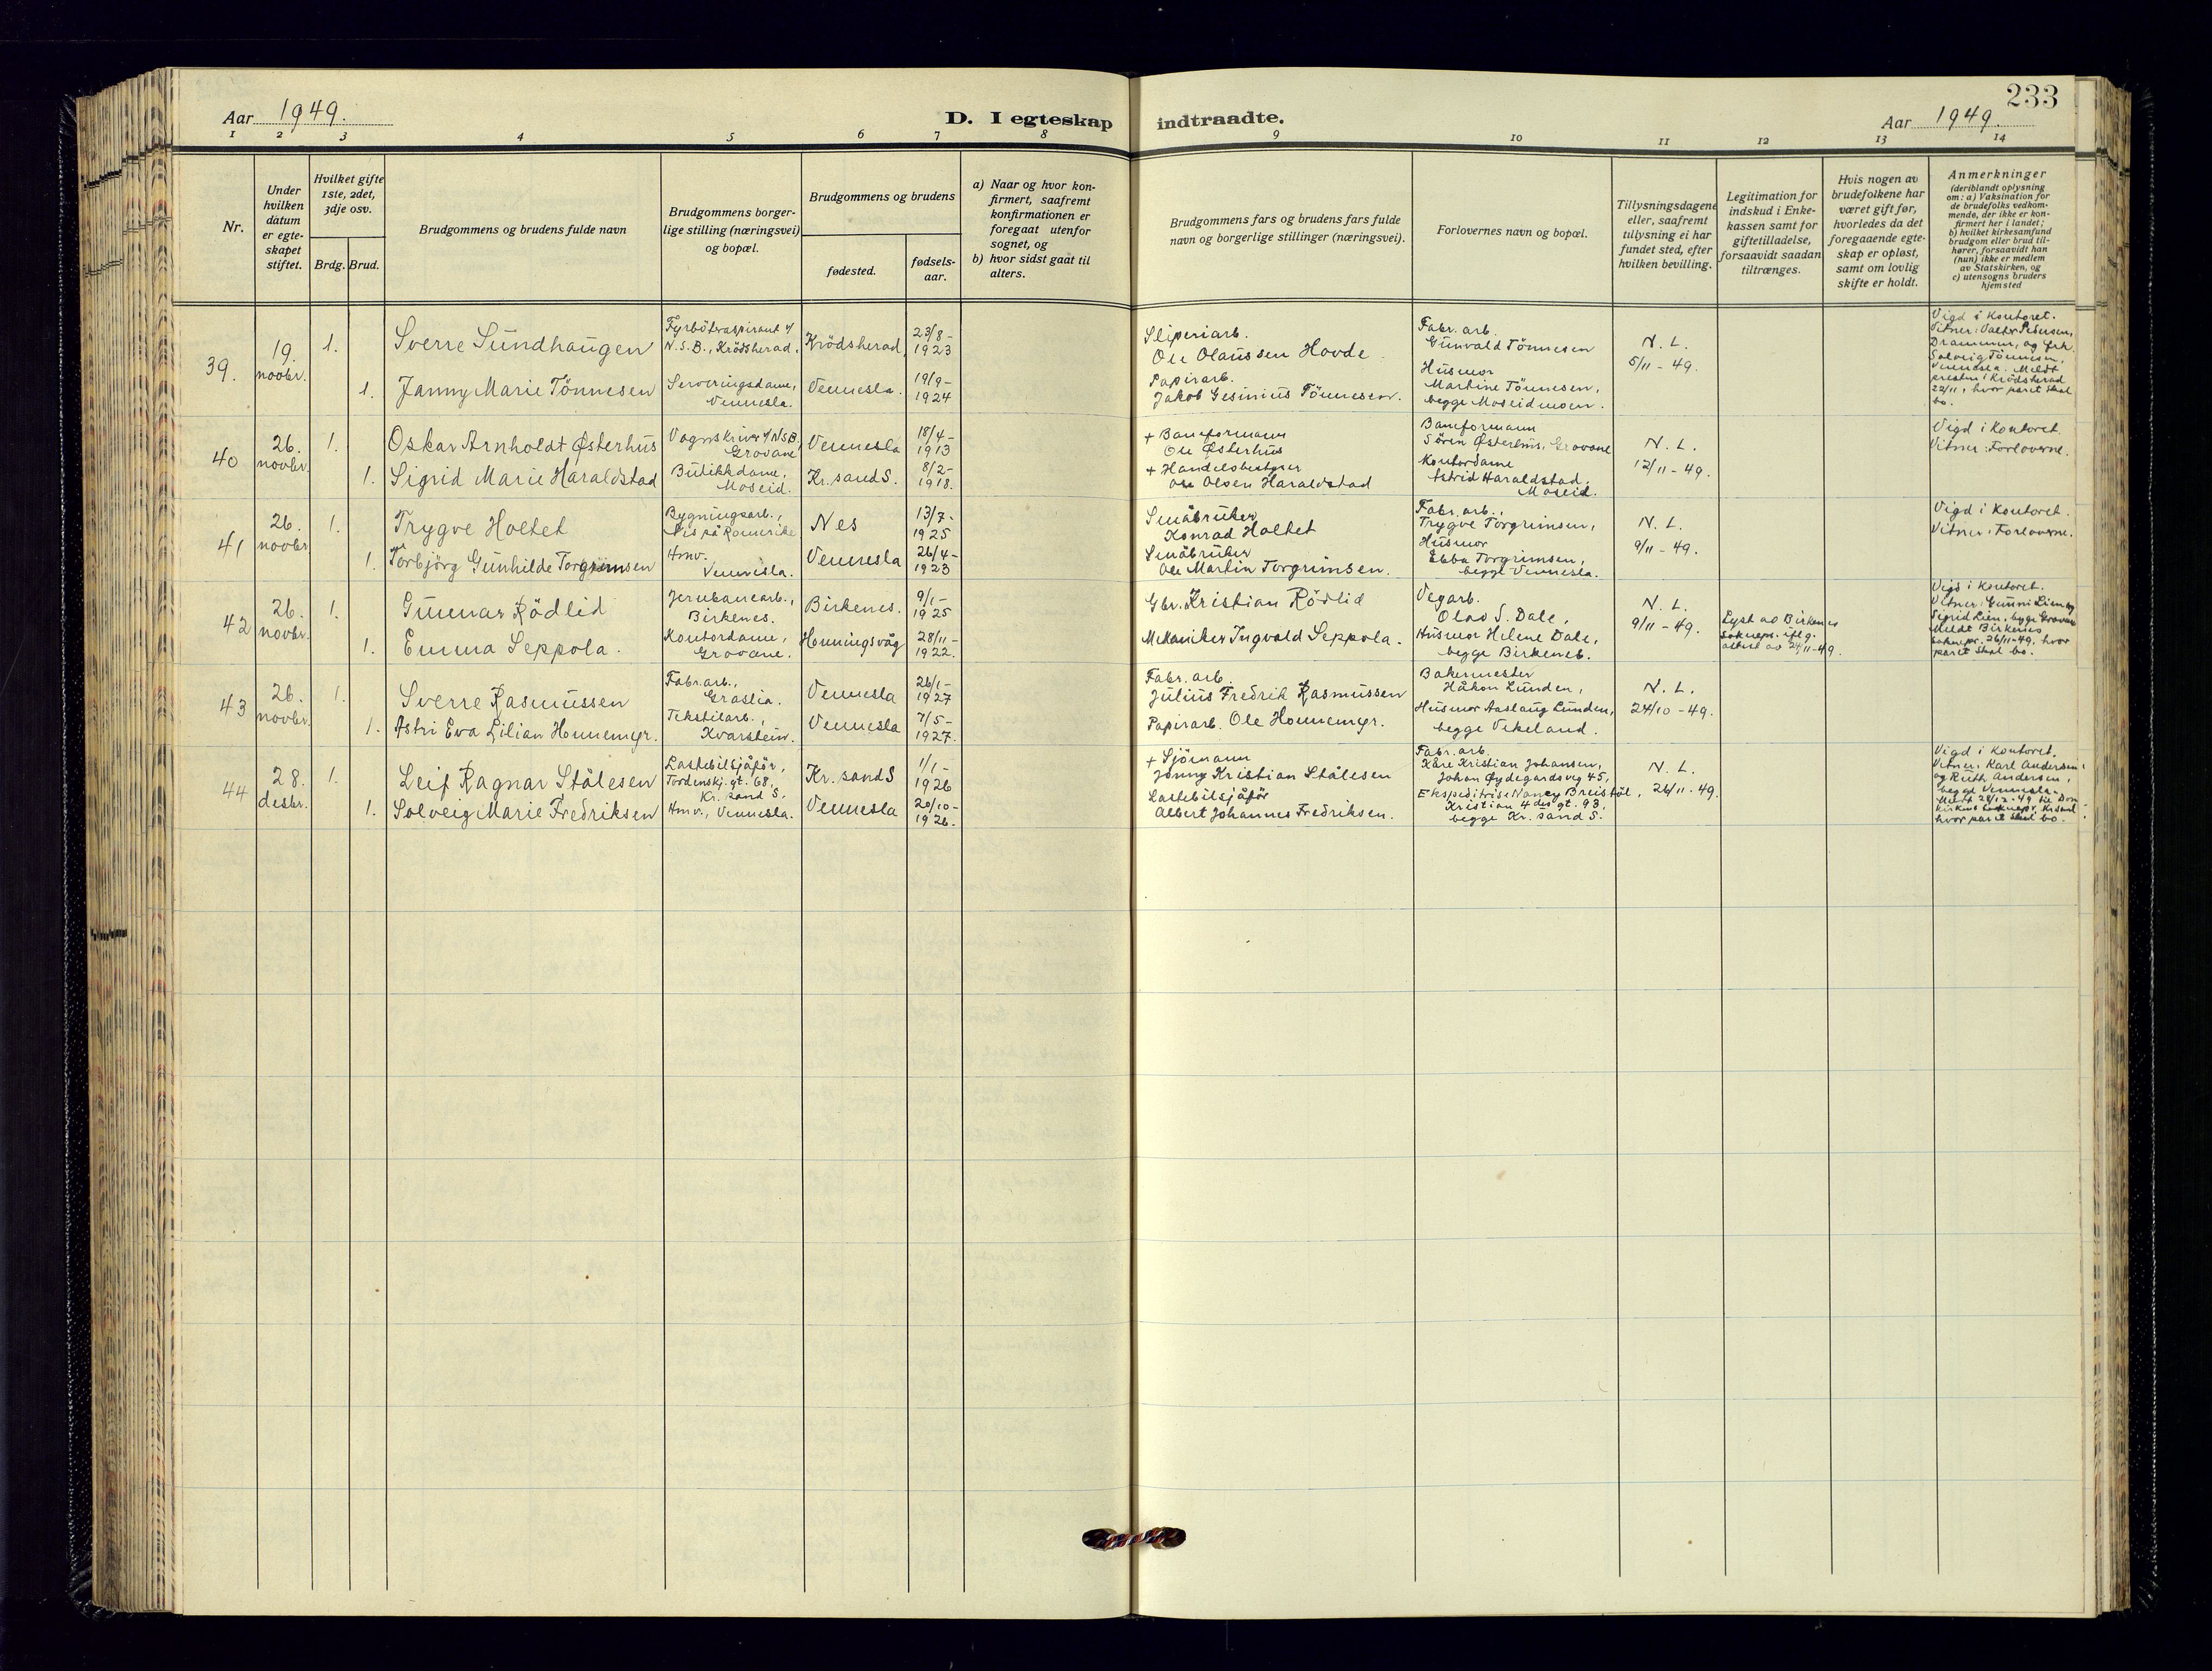 Aar 1949.
D. I egteskap indtraadte.
233
Aar 1949.
1 2 3 4 5 6 7 8 9 10 11 12 13 14
Nr.
Under hvilken datum er egteskapet stiftet.
Hvilket gifte 1ste, 2det, 3dje osv.
Brdg. Brud.
Brudgommens og brudens fulde navn
Brudgommens borgerlige stilling (næringsvei) og bopæl.
Brudgommens og brudens
fødested.
fødselsaar.
a) Naar og hvor konfirmert, saafremt konfirmationen er foregaat utenfor sognet, og
b) hvor sidst gaat til alters.
Brudgommens fars og brudens fars fulde navn og borgerlige stillinger (næringsvei).
Forlovernes navn og bopæl.
Tillysningsdagene eller, saafremt tillysning ei har fundet sted, efter hvilken bevilling.
Legitimation for indskud i Enkekassen samt for giftetilladelse, forsaavidt saadan tiltrænges.
Hvis nogen av brudefolkene har været gift før, hvorledes da det foregaaende egteskap er opløst, samt om lovlig skifte er holdt.
Anmerkninger
(deriblandt oplysning om: a) Vaksination for de brudefolks vedkommende, der ikke er konfirmert her i landet; b) hvilket kirkesamfund brudgom eller brud tilhører, forsaavidt han (hun) ikke er medlem av Statskirken, og c) utensogns bruders hjemsted
39. 19. novbr. 1. Sverre Sundhaugen
Fyrbøteraspirant v/ N.S.B., Krödsherad.
Krödsherad 23/8-1923
Sliperiarb. Ole Olaussen Hovde.
1. Janny Marie Tönnesen
Serveringsdame, Vennesla.
Vennesla. 19/9-1924
Papirarb. Jakob Gesinius Tönnesen.
Fabr. arb. Gunvald Tönnesen
Husmor Martine Tönnesen, begge Moseidmoen.
N. L. 5/11-49.
Vigd i Kontoret.
Vitner: Valter Pedersen,
Drammen, og frk.
Solveig Tönnesen,
Vennesla. Meldt
presten i Krödsherad
22/11, hvor paret skal
bo.
40 26. novbr. 1. Oskar Arnholdt Østerhus
Vognskriver v/ NSB, Grovane
Vennesla 18/4-1913
+ Baneformann Ole Østerhus
1. Sigrid Marie Haraldstad
Butikkdame, Moseid.
Kr.sand S. 8/2-1918.
+ Handelsbestyrer Ole Olsen Haraldstad
Baneformann Sören Østerhus, Grovane
Kontordame Astrid Haraldstad, Moseid.
N. L. 12/11-49.
Vigd i Kontoret.
Vitner: Forloverne.
41 26. novbr. 1. Trygve Holtet
Bygningsarb., Nes på Romerike
Nes 13/7-1925
Småbruker Konrad Holtet
1. Torbjörg Gunhilde Torgrimsen
Hmv. Vennesla.
Vennesla 26/4-1923
Småbruker Ole Martin Torgrimsen.
Fabr. arb., Trygve Torgrimsen,
Husmor Ebba Torgrimsen, begge Vennesla.
N. L. 9/11-49.
Vigd i Kontoret.
Vitner: Forloverne.
42 26. novbr. 1. Gunnar Rödlid
Jernbanearb., Birkenes.
Birkenes. 9/1-1925
Gbr. Kristian Rödlid
1. Emma Seppola.
Kontordame, Grovane.
Honningsvåg 28/11-1922.
Mekaniker Ingvald Seppola.
Vegarb. Olav S. Dale,
Husmor Helene Dale, begge Birkenes.
N. L. 9/11-49.
Lyst av Birkenes
soknepr. iflg.
attest av 24/11-49.
Vigd i Kontoret.
Vitner: Gunni Lien og
Sigrid Lien, begge Grovane
Meldt Birkenes
soknepr. 26/11-49, hvor
paret skal bo.
43 26. novbr. 1. Sverre Rasmussen
Fabr.arb., Graslia.
Vennesla 26/1-1927
Fabr. arb. Julius Fredrik Rasmussen
1. Astri Eva Lilian Honnemyr.
Tekstilarb., Kvarstein.
Vennesla 7/5-1927.
Papirarb. Ole Honnemyr.
Bakermester Håkon Lunden,
Husmor Aaslaug Lunden, begge Vikeland.
N. L. 24/10-49.
44 28. desbr. 1. Leif Ragnar Stålesen
Lastebilsjåför, Tordenskj.gt. 68, Kr. sand S.
Kr. sand S 1/1-1926
+ Sjömann Jonny Kristian Stålesen
1. Solveig Marie Fredriksen
Hmv., Vennesla.
Vennesla 20/10-1926.
Lastebilsjåför Albert Johannes Fredriksen.
Fabr. arb. Kåre Kristian Johansen, Johan Øydegardsveg 45,
Ekspeditrise Nancy Breistöl, Kristian 4 des gt. 93, begge Kr. sand S.
N. L. 26/11-49.
Vigd i Kontoret.
Vitner: Karl Andersen
og Ruth Andersen,
begge Vennesla.
Meldt 28/12-49 til Dom-
kirkens soknepr. Kr.sand
hvor paret skal bo.